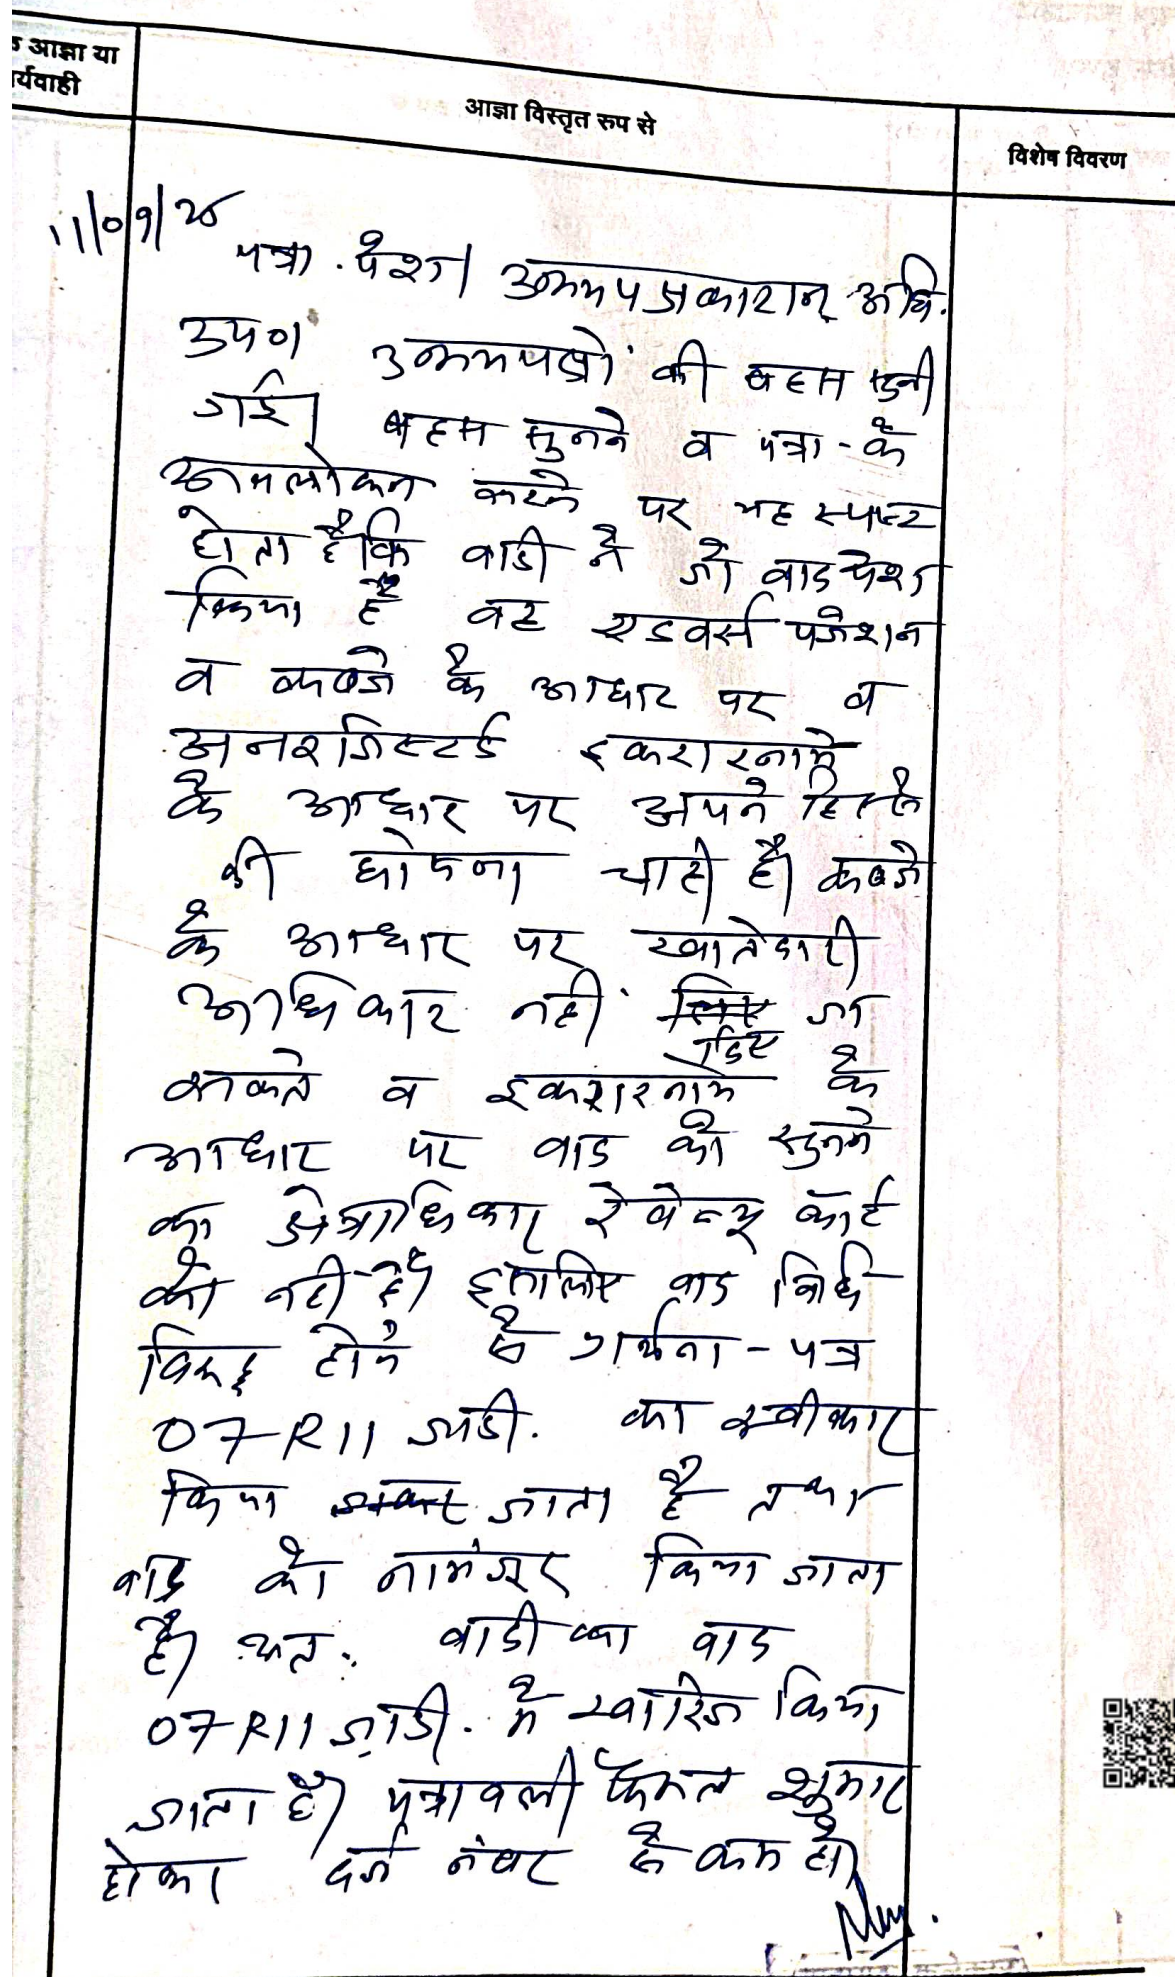 आज्ञा या
र्यवाही
आज्ञा विस्तृत रुप से
विशेष विवरण
11/09/25
पत्रा. पेश। उभयपक्षकारान् अधि.
उप०। उभयपक्षों की बहस सुनी
गई। बहस सुनने व पत्रा- के
अवलोकन करने पर यह स्पष्ट
होता है कि वादी ने जो वाद पेश
किया है वह एडवर्स पजेशन
व कब्जे के आधार पर व
अनरजिस्टर्ड इकरारनामे
के आधार पर अपने हिस्से
की घोषणा चाही है। कब्जे
के आधार पर खातेदारी
अधिकार नहीं दिए जा
सकते व इकरारनामे के
आधार पर वाद को सुनने
का क्षेत्राधिकार रेवेन्यू कोर्ट
को नहीं है। इसलिए वाद विधि
विरूद्ध होने से प्रार्थना-पत्र
07-R11 जा.दी. का स्वीकार
किया जाता है तथा
वाद को नामंजूर किया जाता
है। अतः वादी का वाद
07-R11 जा.दी. में खारिज किया
जाता है। पत्रावली फैसल शुमार
होकर दर्ज नंबर से कम हो।